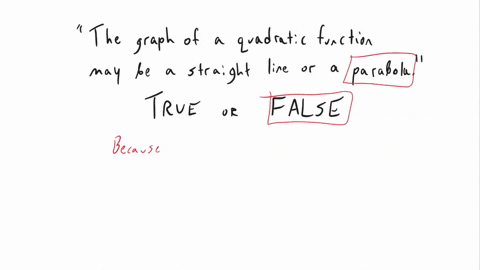 "The graph of a quadratic function
may be a straight line or a parabola."
TRUE or FALSE
Because